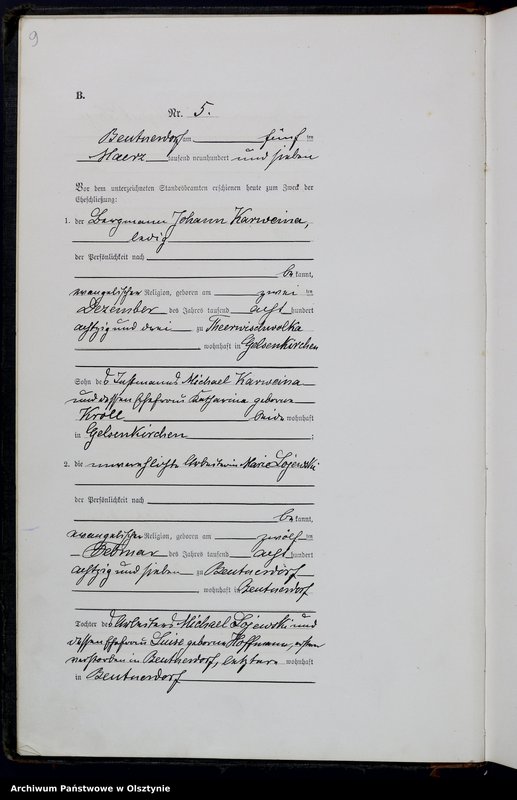 9
B.
Nr. 5.
Beutnerdorf am fünf ten
Maerz tausend neunhundert und sieben
Vor dem unterzeichneten Standesbeamten erschienen heute zum Zweck der
Eheschließung:
1. der Bergmann Johann Karweina,
ledig
der Persönlichkeit nach
be kannt,
evangelischer Religion, geboren am zwei ten
Dezember des Jahres tausend acht hundert
achtzig und drei zu Theerwischwolka
, wohnhaft in Gelsenkirchen
Sohn des Instmanns Michael Karweina
und dessen Ehefrau Katharina geborene
Kroll beide wohnhaft
in Gelsenkirchen ;
2. die unverehlichte Arbeiterin Marie Lojewski
der Persönlichkeit nach
be kannt,
evangelischer Religion, geboren am zwölf ten
Februar des Jahres tausend acht hundert
achtzig und sieben zu Beutnerdorf
, wohnhaft in Beutnerdorf
Tochter des Arbeiters Michael Lojewski und
dessen Ehefrau Luise geborene Hoffmann, ersterer
verstorben in Beutnerdorf, letztere wohnhaft
in Beutnerdorf
Archiwum Państwowe w Olsztynie